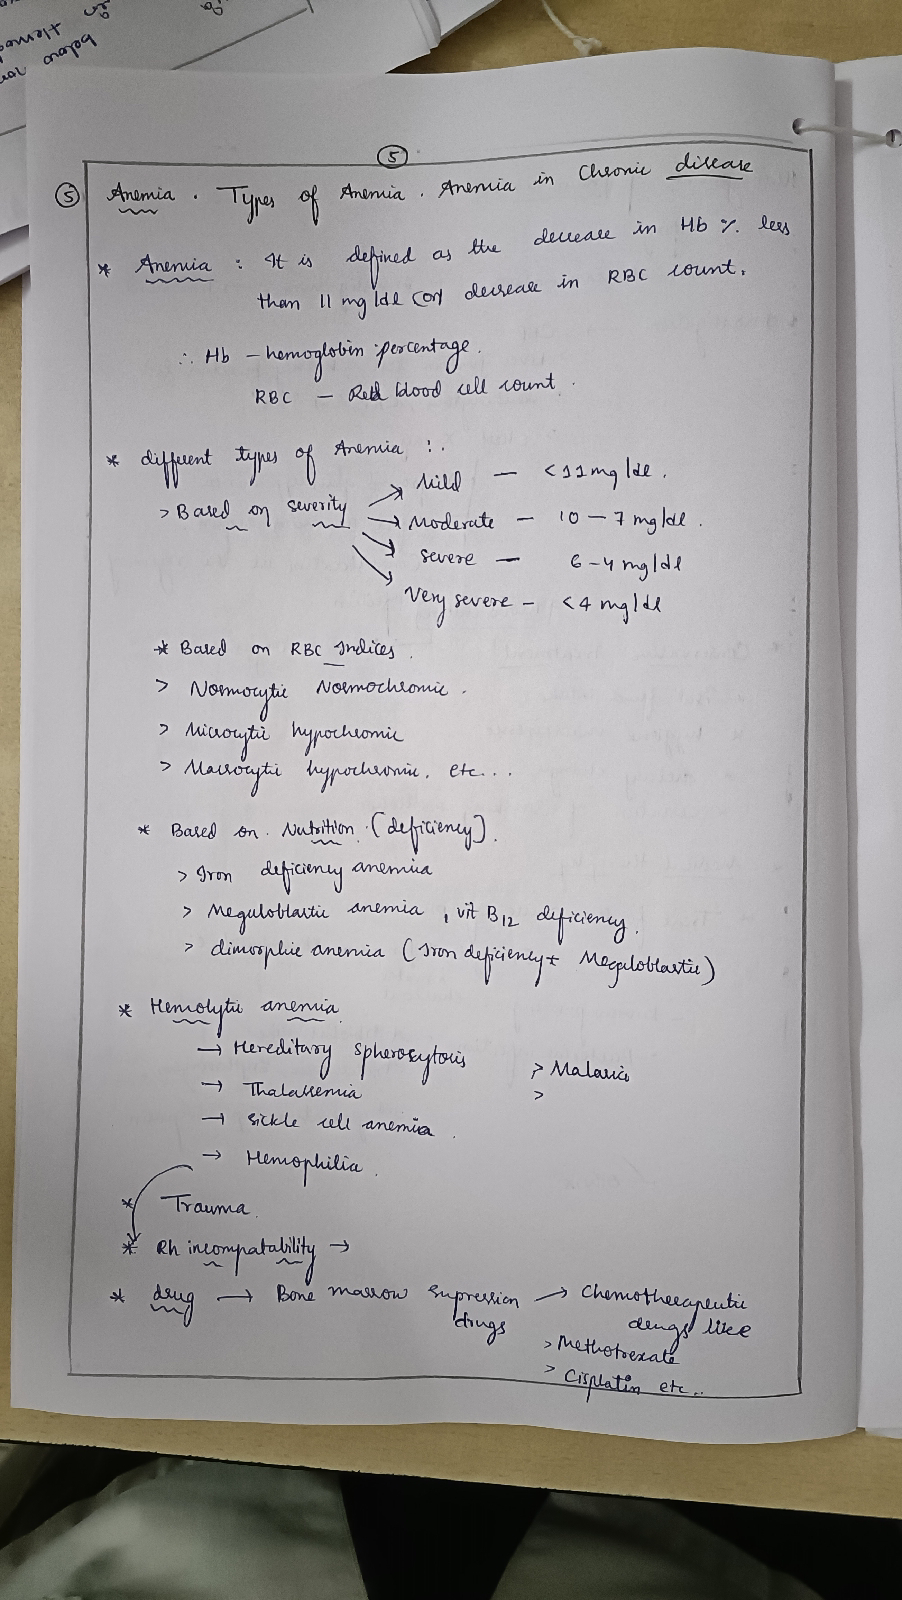 5
5 Anemia. Types of Anemia. Anemia in Chronic disease
* Anemia : It is defined as the decrease in Hb % less
than 11 mg/dl (or) decrease in RBC count.
∴ Hb - hemoglobin percentage.
RBC - Red blood cell count.
* different types of Anemia :.
Mild - <11 mg/dl.
> Based on severity
Moderate - 10-7 mg/dl.
severe - 6-4 mg/dl
Very severe - <4 mg/dl
* Based on RBC Indices.
> Normocytic Normochromic.
> Microcytic hypochromic
> Macrocytic hypochromic, etc...
* Based on Nutrition (deficiency).
> Iron deficiency anemia
> Megaloblastic anemia, vit B12 deficiency.
> dimorphic anemia (Iron deficiency + Megaloblastic)
* Hemolytic anemia
→ Hereditary spherocytosis
> Malaria
→ Thalassemia
>
→ Sickle cell anemia.
→ Hemophilia.
* Trauma.
* Rh incompatability →
* drug → Bone marrow supression drugs → Chemotherapeutic
drugs like
> Methotrexate
> Cisplatin etc..
below